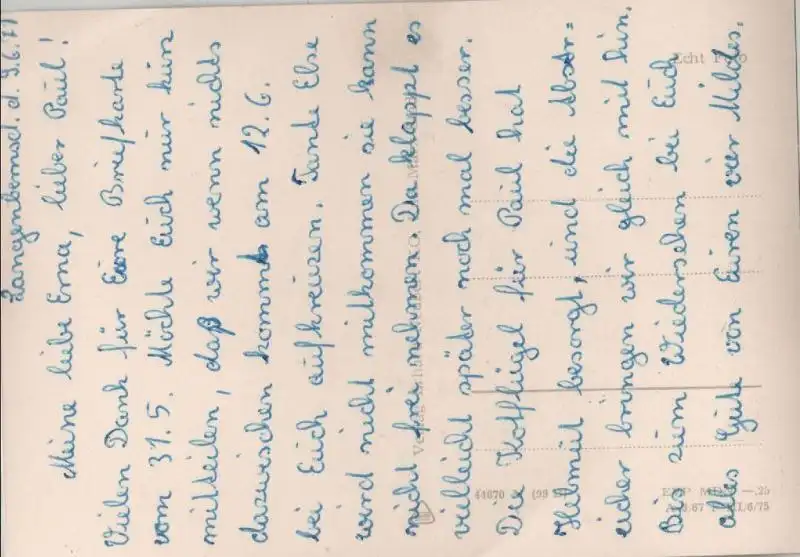 Langenbernsd. d. 9.6.71
Meine liebe Erna, lieber Paul!
Vielen Dank für Eure Briefkarte
vom 31.5. Möchte Euch nur kurz
mitteilen, daß wir wenn nichts
dazwischen kommt am 12.6.
bei Euch aufkreuzen. Tante Else
wird nicht mitkommen sie kann
nicht frei nehmen. Da klappt es
vielleicht später noch mal besser.
Die Kotflügel für Paul hat
Helmut besorgt, und die Abstr=
eicher bringen wir gleich mit hin.
Bis zum Wiedersehen bei Euch
alles Gute von Euren vier
Echt Foto
Verlag
44670 (99
EVP MDN —,25